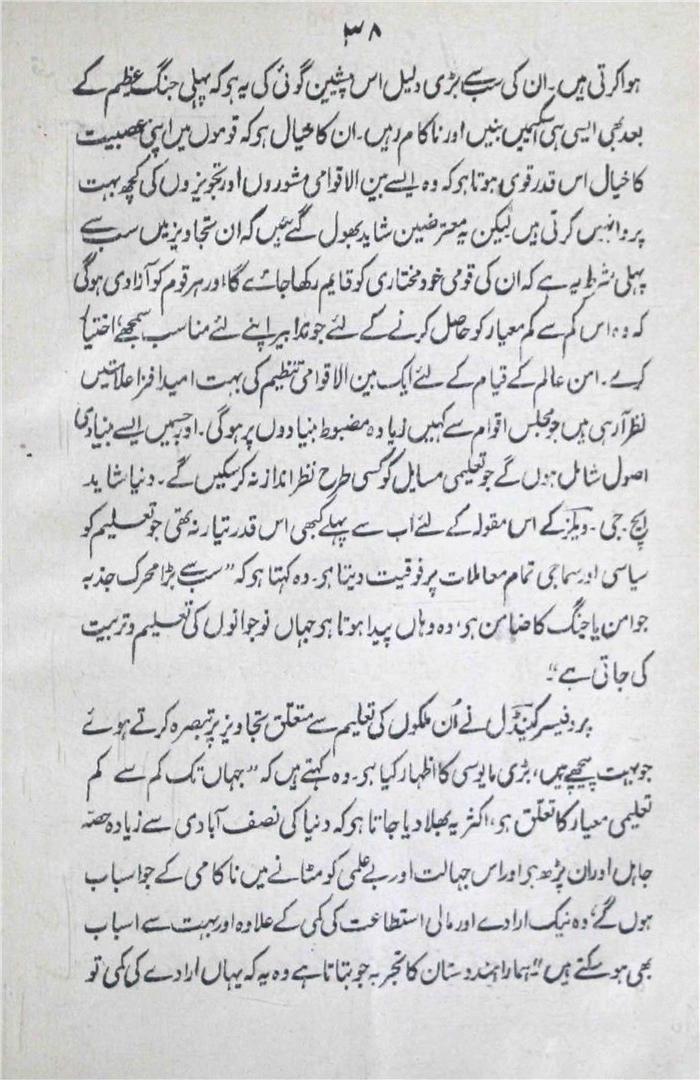 ۳۸
ہوا کرتی ہیں۔ ان کی سب سے بڑی دلیل اس پیشین گوئی کی یہ ہو کہ پہلی جنگ عظیم کے
بعد بھی ایسی ہی اسکیمیں بنیں اور ناکام رہیں۔ ان کا خیال ہو کہ قوموں میں اپنی عصبیت
کا خیال اس قدر قوی ہوتا ہو کہ وہ ایسے بین الاقوامی مشوروں اور تجویزوں کی کچھ بہت
پروا نہیں کرتی ہیں لیکن یہ معترضین شاید بھول گئے ہیں کہ ان تجاویز میں سب سے
پہلی شرط یہ ہے کہ ان کی قومی خود مختاری کو قایم رکھا جائے گا اور ہر قوم کو آزادی ہوگی
کہ وہ اس کم سے کم معیار کو حاصل کرنے کے لئے جو تدابیر اپنے لئے مناسب سمجھے، اختیار
کرے۔ امن عالم کے قیام کے لئے ایک بین الاقوامی تنظیم کی بہت امید افزا علامتیں
نظر آ رہی ہیں جو مجلس اقوام سے کہیں زیادہ مضبوط بنیادوں پر ہوگی۔ اور جسمیں ایسے بنیادی
اصول شامل ہوں گے جو تعلیمی مسایل کو کسی طرح نظر انداز نہ کرسکیں گے۔ دنیا شاید
ایچ۔ جی۔ ویلز کے اس مقولہ کے لئے اب سے پہلے کبھی اس قدر تیار نہ تھی جو تعلیم کو
سیاسی اور سماجی تمام معاملات پر فوقیت دیتا ہو۔ وہ کہتا ہو کہ ”سب سے بڑا محرک جذبہ
جو امن یا جنگ کا ضامن ہو، وہ وہاں پیدا ہوتا ہو جہاں نوجوانوں کی تعلیم و تربیت
کی جاتی ہے“۔
پروفیسر کینڈل نے اُن ملکوں کی تعلیم سے متعلق تجاویز پر تبصرہ کرتے ہوئے
جو بہت پیچھے ہیں، بڑی مایوسی کا اظہار کیا ہو۔ وہ کہتے ہیں کہ ”جہاں تک کم سے کم
تعلیمی معیار کا تعلق ہو، اکثر یہ بھلا دیا جاتا ہو کہ دنیا کی نصف آبادی سے زیادہ حصّہ
جاہل اور ان پڑھ ہو اور اس جہالت اور بے علمی کو مٹانے میں ناکامی کے جو اسباب
ہوں گے، وہ نیک ارادے اور مالی استطاعت کی کمی کے علاوہ اور بہت سے اسباب
بھی ہو سکتے ہیں“۔ ہمارا ہندوستان کا تجربہ جو بتاتا ہے وہ یہ کہ یہاں ارادے کی کمی تو